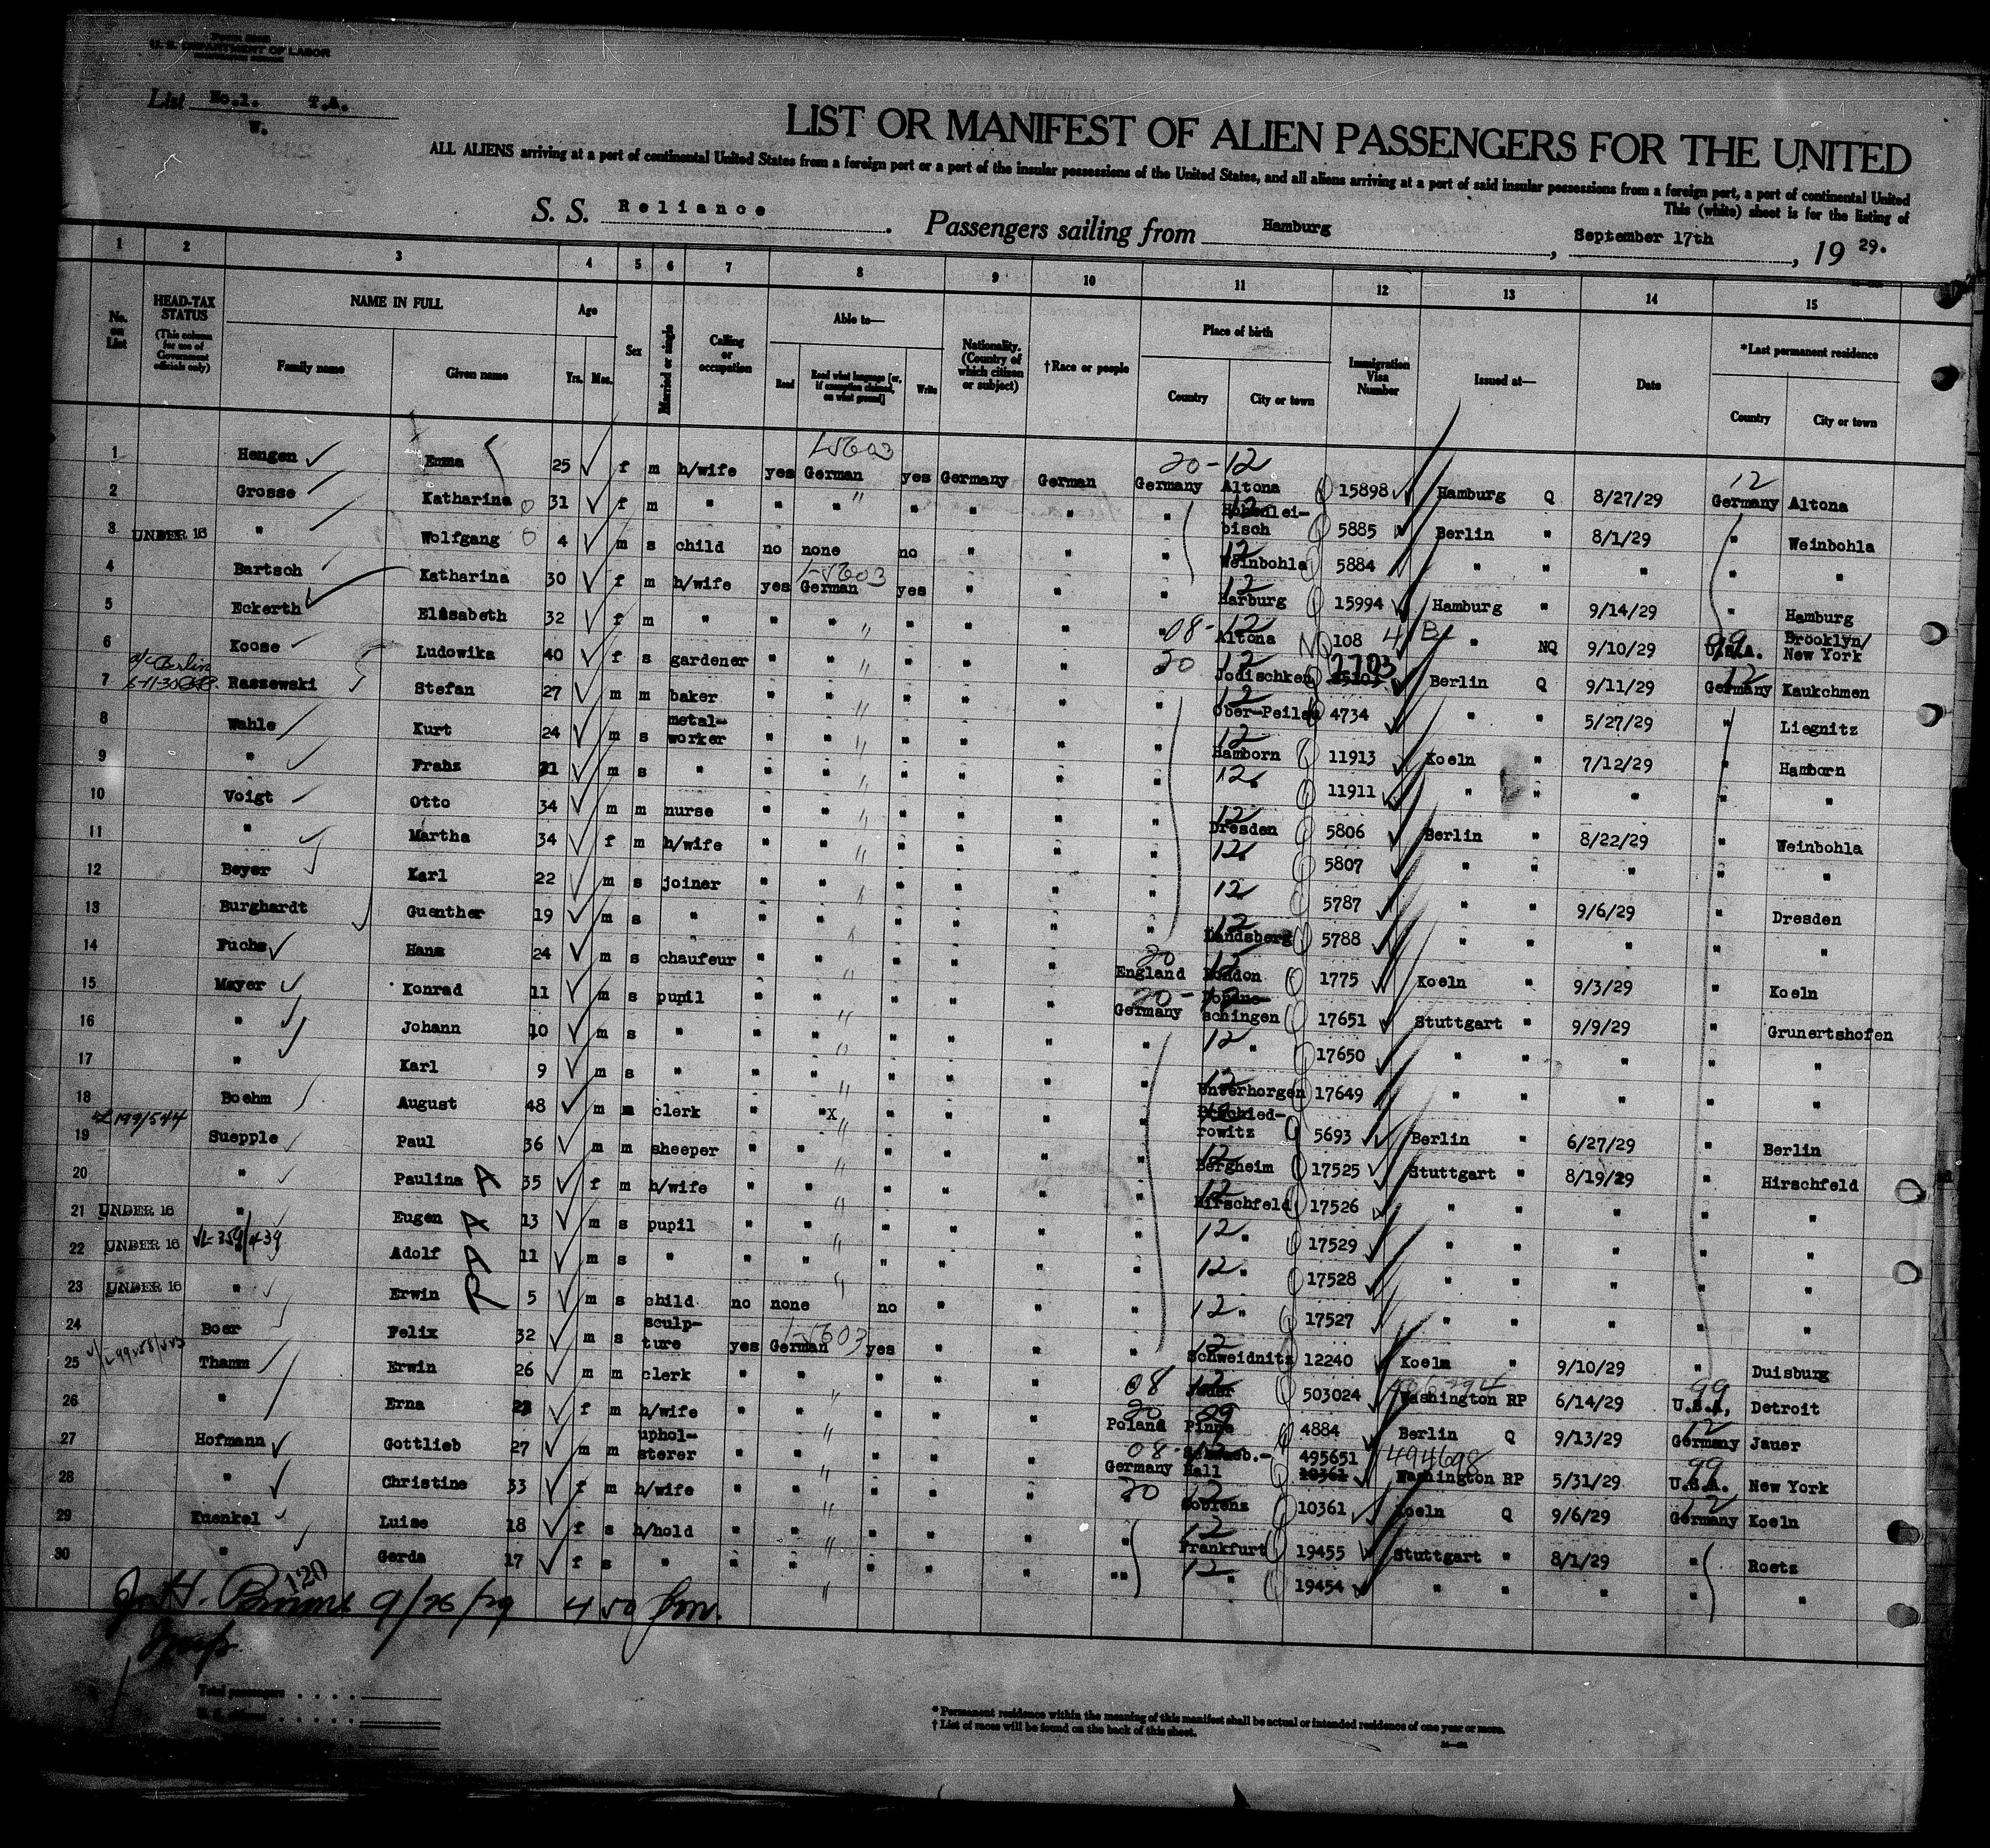 Form 500B
U. S. DEPARTMENT OF LABOR
List No.1. T.A.
W.
LIST OR MANIFEST OF ALIEN PASSENGERS FOR THE UNITED
ALL ALIENS arriving at a port of continental United States from a foreign port or a port of the insular possessions of the United States, and all aliens arriving at a port of said insular possessions from a foreign port, a port of continental United
This (white) sheet is for the listing of
S. S. Reliance. Passengers sailing from Hamburg, September 17th, 19 29.
1 2 3 4 5 6 7 8 9 10 11 12 13 14 15
No. on List HEAD-TAX STATUS (This column for use of Government officials only) NAME IN FULL Family name Given name Age Yrs. Mos. Sex Married or single Calling or occupation Able to— Read Read what language [or, if exemption claimed, on what ground] Write Nationality. (Country of which citizen or subject) †Race or people Place of birth Country City or town Immigration Visa Number Issued at— Date *Last permanent residence Country City or town
1 Hengen Emma 25 f m h/wife yes German yes Germany German Germany Altona 15898 Hamburg Q 8/27/29 Germany Altona
2 Grosse Katharina 31 f m " " " " " " " bisch 5885 Berlin " 8/1/29 " Weinbohla
3 UNDER 16 " Wolfgang 4 m s child no none no " " " Weinbohla 5884 " " " " "
4 Bartsch Katharina 30 f m h/wife yes German yes " " " Harburg 15994 Hamburg " 9/14/29 " Hamburg
5 Eckerth Elisabeth 32 f m " " " " " " " Altona 108 " NQ 9/10/29 U.S.A. Brooklyn/ New York
6 Koose Ludowika 40 f s gardener " " " " " Jodischken 2703 Berlin Q 9/11/29 Germany Kaukchmen
7 Raszewski Stefan 27 m m baker " " " " " " Ober-Peilau 4734 " " 5/27/29 " Liegnitz
8 Wahle Kurt 24 m s metal-worker " " " " " " Hamborn 11913 Koeln " 7/12/29 " Hamborn
9 " Franz 21 m s " " " " " " " " 11911 " " " " "
10 Voigt Otto 34 m m nurse " " " " " " Dresden 5806 Berlin " 8/22/29 " Weinbohla
11 " Martha 34 f m h/wife " " " " " " " 5807 " " " " "
12 Beyer Karl 22 m s joiner " " " " " " " 5787 " " 9/6/29 " Dresden
13 Burghardt Guenther 19 m s " " " " " " " Landsberg 5788 " " " " "
14 Fuchs Hans 24 m s chaufeur " " " " " England London 1775 Koeln " 9/3/29 " Koeln
15 Mayer Konrad 11 m s pupil " " " " " Germany schingen 17651 Stuttgart " 9/9/29 " Grunertshofen
16 " Johann 10 m s " " " " " " " " 17650 " " " " "
17 " Karl 9 m s " " " " " " " Unterhorgen 17649 " " " " "
18 Boehm August 48 m m clerk " "X " " " " rowitz 5693 Berlin " 6/27/29 " Berlin
19 Suepple Paul 36 m m sheeper " " " " " " Bergheim 17525 Stuttgart " 8/19/29 " Hirschfeld
20 " Paulina 35 f m h/wife " " " " " " Hirschfeld 17526 " " " " "
21 UNDER 16 " Eugen 13 m s pupil " " " " " " " 17529 " " " " "
22 UNDER 16 Adolf 11 m s " " " " " " " " 17528 " " " " "
23 UNDER 16 " Erwin 5 m s child no none no " " " " 17527 " " " " "
24 Boer Felix 32 m s sculp-ture yes German yes " " " Schweidnitz 12240 Koeln " 9/10/29 " Duisburg
25 Thamm Erwin 26 m m clerk " " " " " 503024 Washington RP 6/14/29 U.S.A. Detroit
26 " Erna 23 f m h/wife " " " " " Poland Pinne 4884 Berlin Q 9/13/29 Germany Jauer
27 Hofmann Gottlieb 27 m m uphol-sterer " " " " " Germany Hall 495651 494698 Washington RP 5/31/29 U.S.A. New York
28 " Christine 33 f m h/wife " " " " " " Coblenz 10361 Koeln Q 9/6/29 Germany Koeln
29 Kuenkel Luise 18 f s h/hold " " " " " " Frankfurt 19455 Stuttgart " 8/1/29 " Roetz
30 " Gerda 17 f s " " " " " " "" " 19454 " " " " "
120
9/26/29
Total passengers . . . .
* Permanent residence within the meaning of this manifest shall be actual or intended residence of one year or more.
† List of races will be found on the back of this sheet.